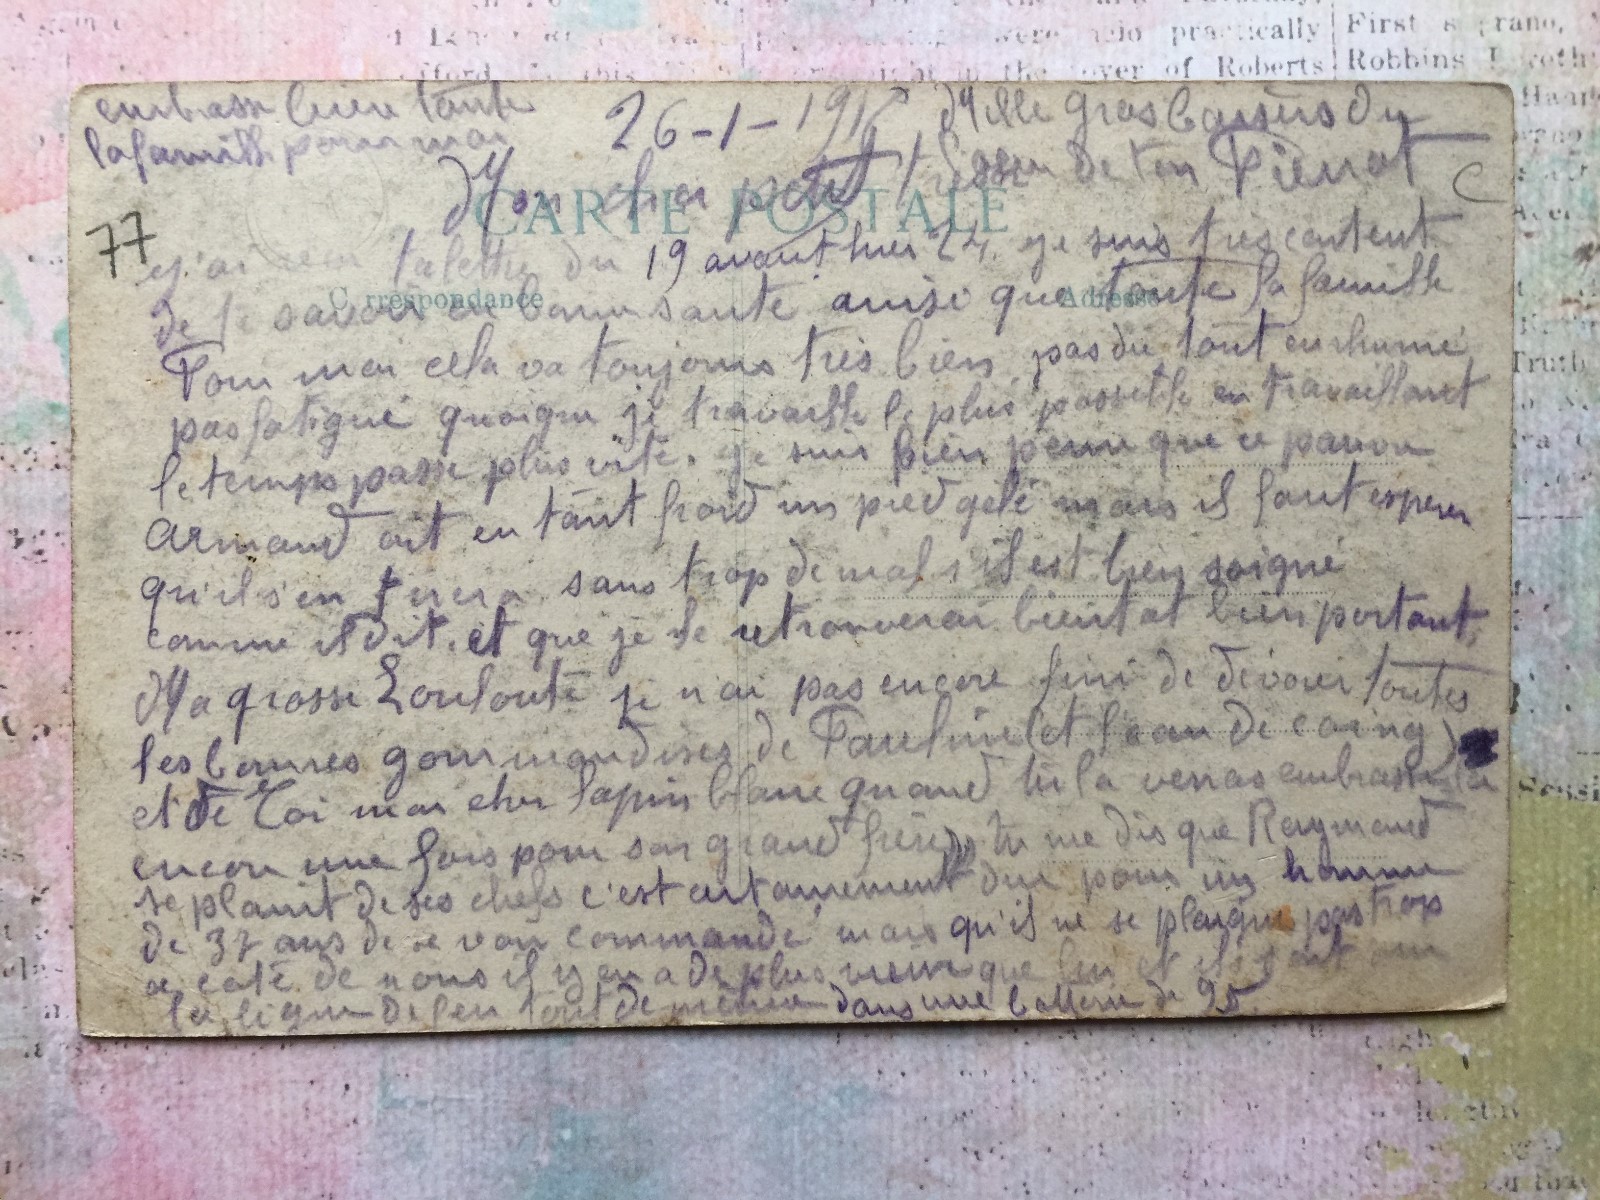 embrasse bien toute
la famille pour moi
26-1-1917
Mille gros baisers du
Tresson de ton Pierrot
C
77
CARTE POSTALE
Mon cher petit
j'ai reçu ta lettre du 19 avant hier 24. je suis très content
Correspondance
Adresse
de te savoir en bonne santé ainsi que toute la famille
Pour moi cela va toujours très bien pas du tout enrhumé
pas fatigué quoique je travaille le plus possible en travaillant
le temps passe plus vite. je suis bien peiné que ce pauvre
Armand ait en tant froid un pied gelé mais il faut esperer
qu'il s'en tirera sans trop de mal s'il est bien soigné
comme il dit. et que je le retrouverai bientot bien portant.
Ma grosse Louloute je n'ai pas encore fini de dévorer toutes
les bonnes gourmandises de Pauline (et l'eau de coing)
et de Toi mon cher lapin blanc quand tu la verras embrasse la
encore une fois pour son grand frère, tu me dis que Raymond
se plaint de ses chefs c'est certainement dur pour un homme
de 37 ans de se voir commandé mais qu'il ne se plaigne pas trop
a coté de nous il y en a de plus vieux que lui et ils sont sur
la ligne de feu tout de même dans une batterie de 95